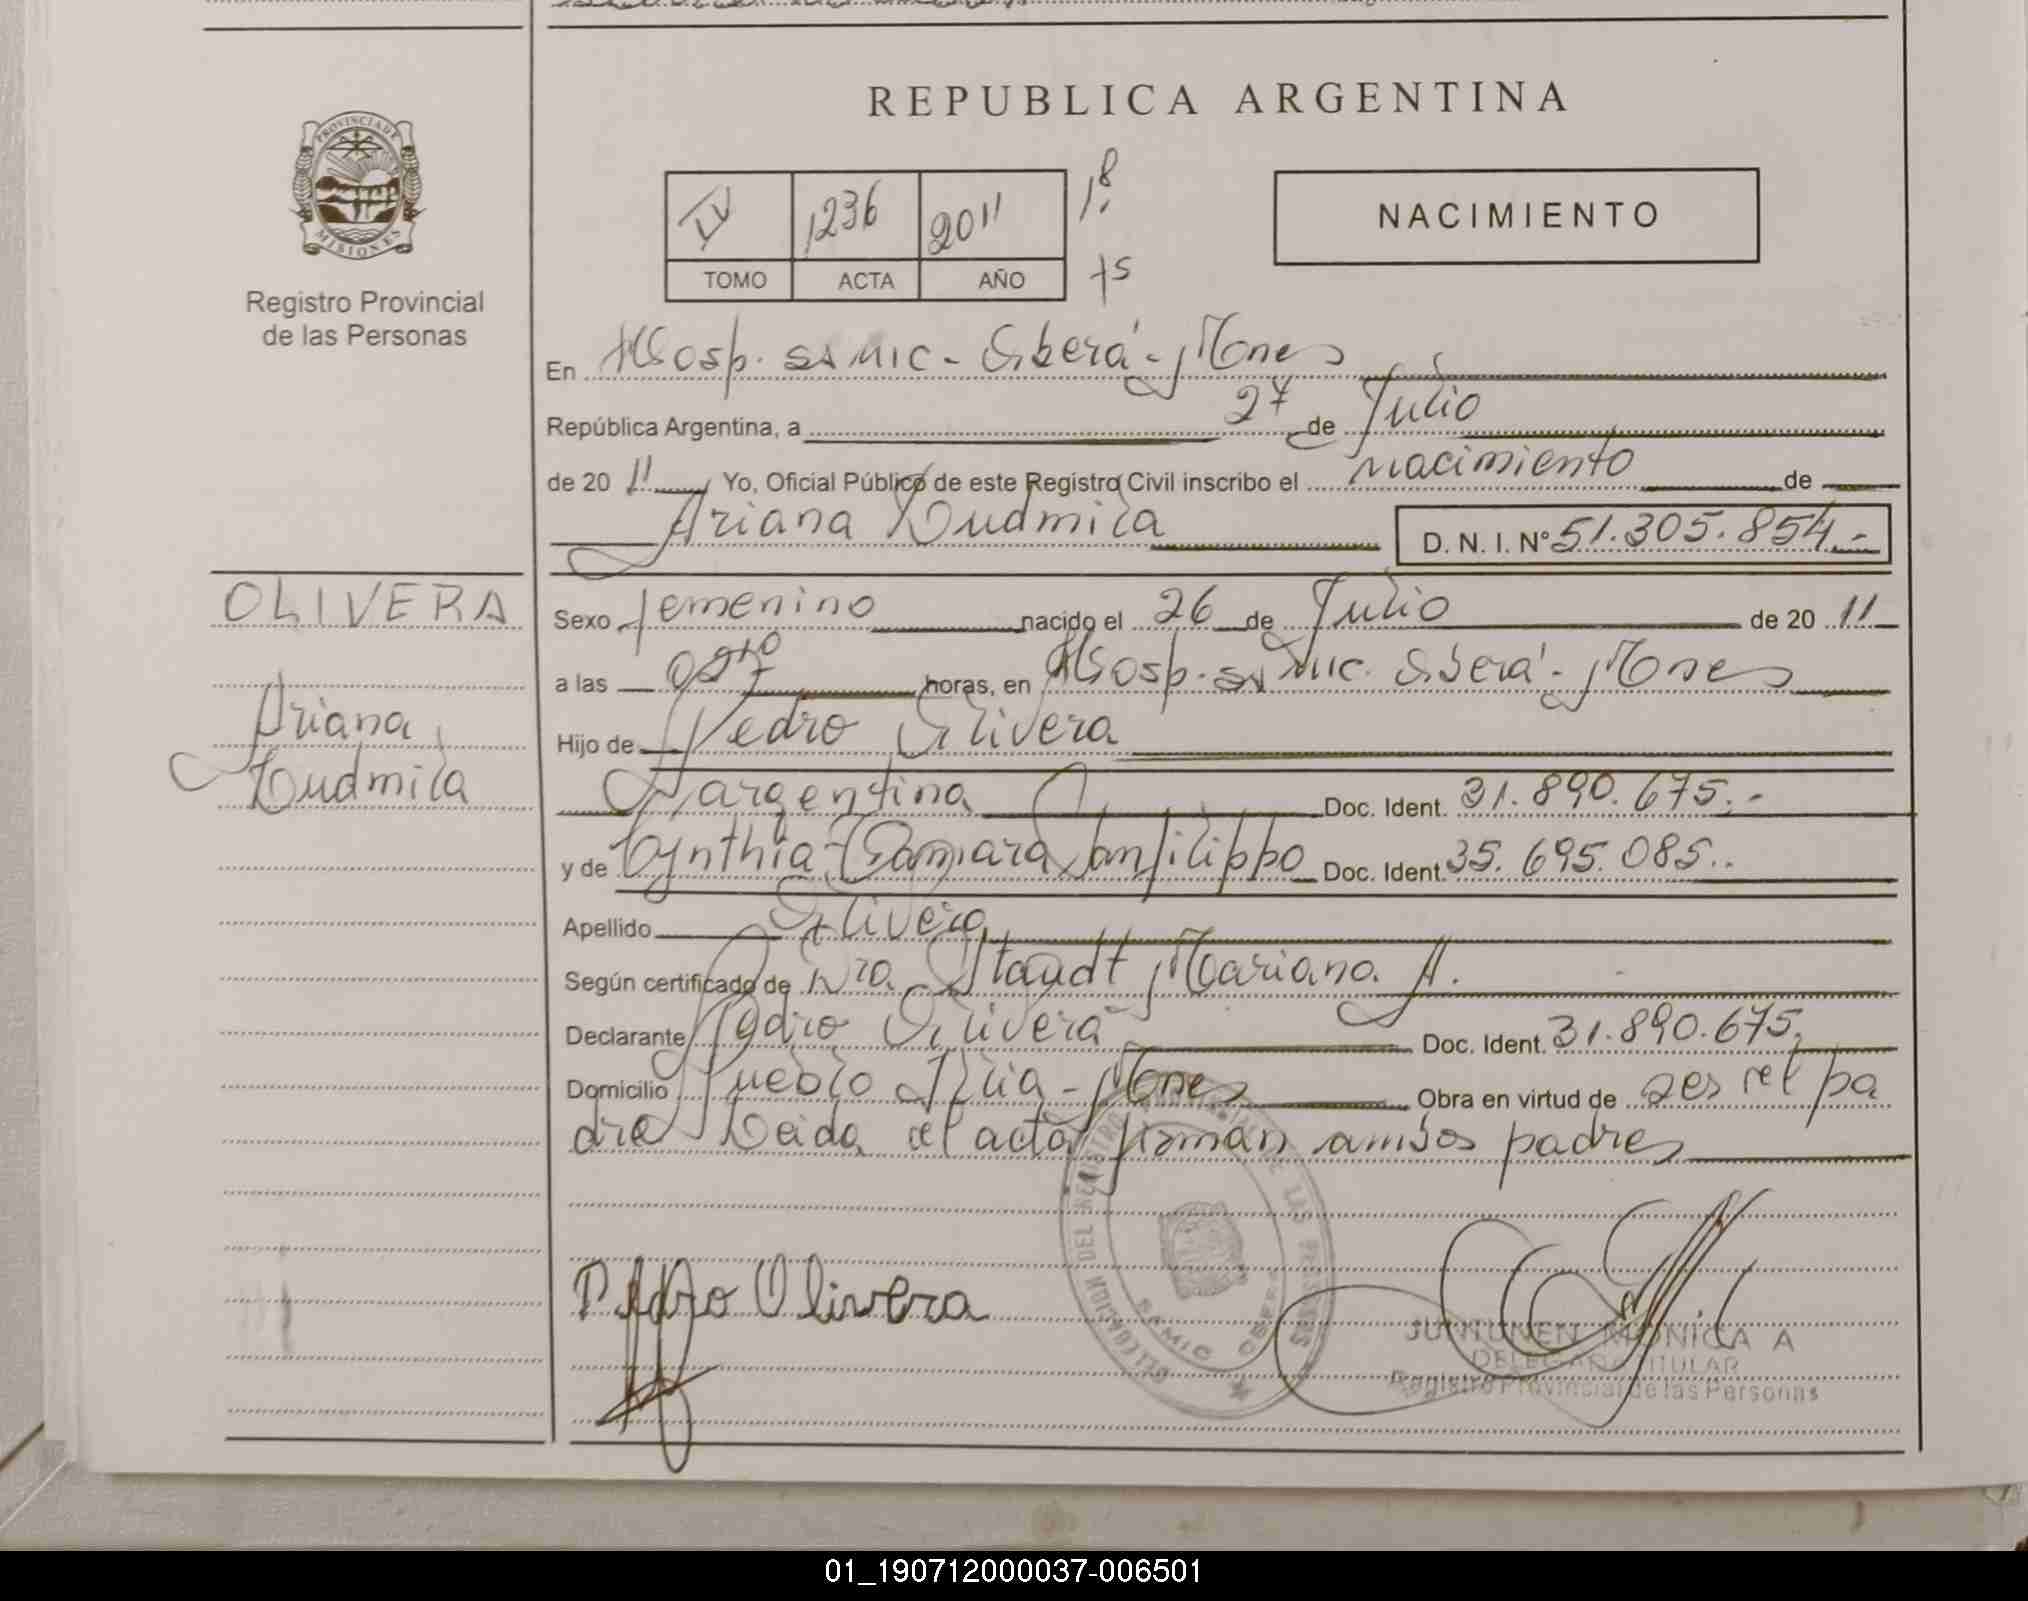 REPUBLICA ARGENTINA
PROVINCIA DE
MISIONES
Registro Provincial
de las Personas
IV 1236 2011
TOMO ACTA AÑO
NACIMIENTO
En Hosp. SAMIC - Oberá - Mnes
República Argentina, a 27 de Julio
de 2011 Yo, Oficial Público de este Registro Civil inscribo el nacimiento de
Ariana Ludmila D. N. I. Nº 51.305.854.-
OLIVERA
Ariana
Ludmila
Sexo femenino nacido el 26 de Julio de 2011
a las horas, en Hosp. SAMIC. Oberá - Mnes
Hijo de Pedro Olivera
Argentina Doc. Ident. 31.890.675.-
y de Cynthia Samara Sanfilippo Doc. Ident. 35.695.085..
Apellido Olivera
Según certificado de Dra Staudt Mariana A.
Declarante Pedro Olivera Doc. Ident. 31.890.675.
Domicilio Pueblo Mnes Obra en virtud de ser el pa
dre Leida el acta firman ambos padres
Pedro Olivera
DELEGACION DEL REGISTRO PROVINCIAL DE LAS PERSONAS
SAMIC OBERA
JUNTUNEN MONICA A
DELEGADA TITULAR
Registro Provincial de las Personas
01_190712000037-006501